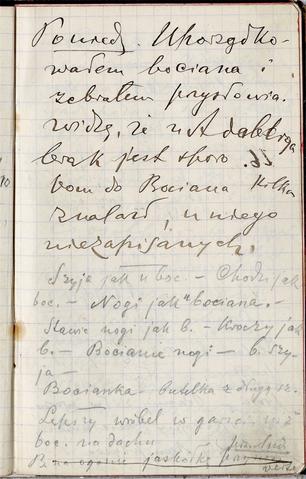 Poniedz. Uporządko-
wałem bociana i
zebrałem przysłowia.
widzę, że u Adalberga
brak jest sporo.
bom do Bociana kilka
znalazł, u niego
niezapisanych.
Szyja jak u boc. – Chodzi jak
boc. – Nogi jak u bociana. –
Stawia nogi jak b. – Kroczy jak
b. – Bocianie nogi – b. szy-
ja –
Bocianka – butelka z długą sz.
Lepszy wróbel w garści, niż
boc. na dachu
B. na ogonie jaskółkę